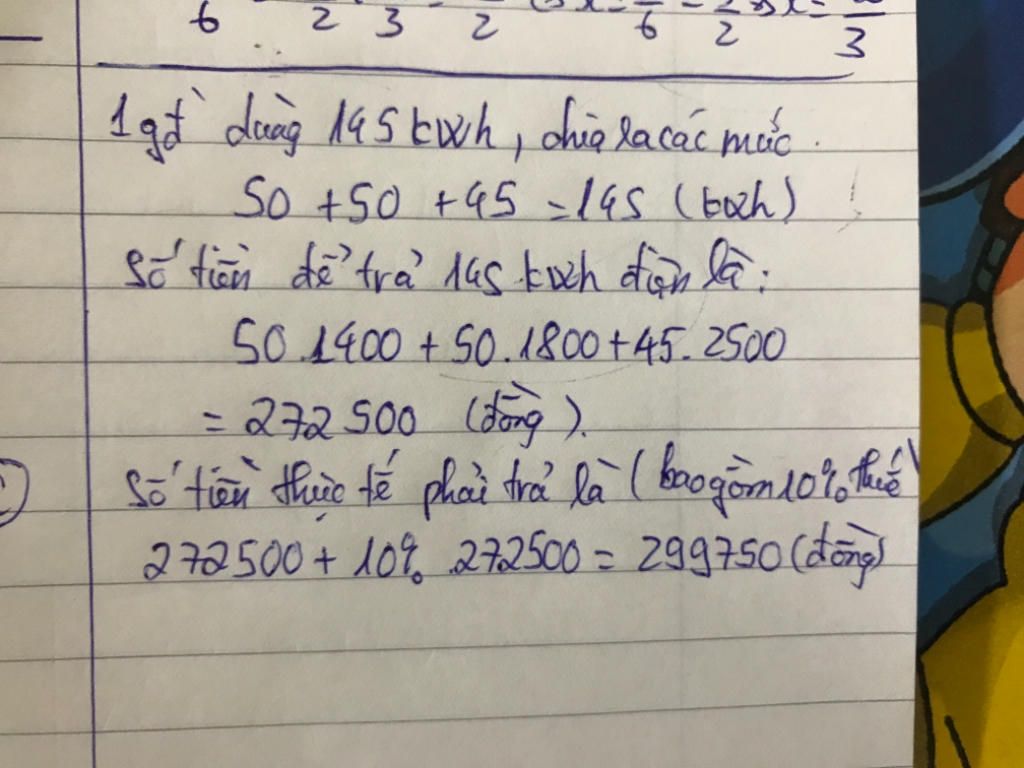 6 2 3 = 2 6 - 2 3
1 gđ dùng 145 kwh, chia ra các mức.
50 + 50 + 45 = 145 (kwh)
Số tiền để trả 145 kwh điện là:
50.1400 + 50.1800 + 45.2500
= 272 500 (đồng).
Số tiền thực tế phải trả là (bao gồm 10% thuế)
272500 + 10% .272500 = 299750 (đồng)